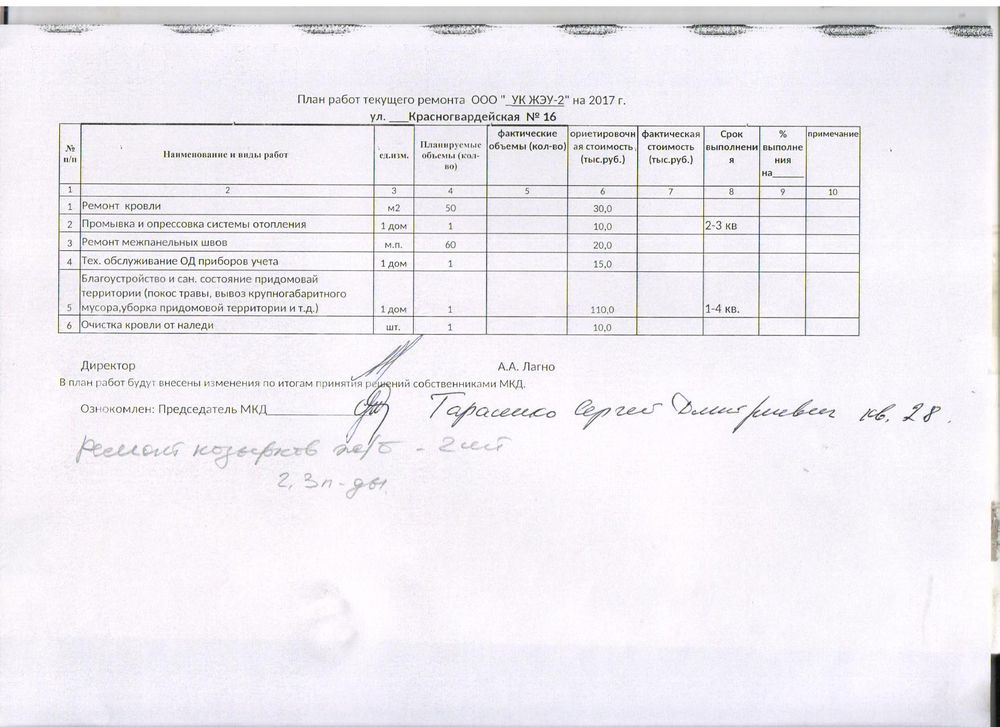 План работ текущего ремонта ООО "_УК ЖЭУ-2" на 2017 г.
ул. ___Красногвардейская № 16
№ п/п Наименование и виды работ ед.изм. Планируемые объемы (кол-во) фактические объемы (кол-во) ориетировочная стоимость (тыс.руб.) фактическая стоимость (тыс.руб.) Срок выполнения % выполнения на______ примечание
1 2 3 4 5 6 7 8 9 10
1 Ремонт кровли м2 50 30,0
2 Промывка и опрессовка системы отопления 1 дом 1 10,0 2-3 кв
3 Ремонт межпанельных швов м.п. 60 20,0
4 Тех. обслуживание ОД приборов учета 1 дом 1 15,0
Благоустройство и сан. состояние придомовай
территории (покос травы, вывоз крупногабаритного
5 мусора,уборка придомовой территории и т.д.) 1 дом 1 110,0 1-4 кв.
6 Очистка кровли от наледи шт. 1 10,0
Директор А.А. Лагно
В план работ будут внесены изменения по итогам принятия решений собственниками МКД.
Ознокомлен: Председатель МКД Тарасенко Сергей Дмитриевич кв. 28.
Ремонт козырьков ж/б - 2шт
2, 3п-ды